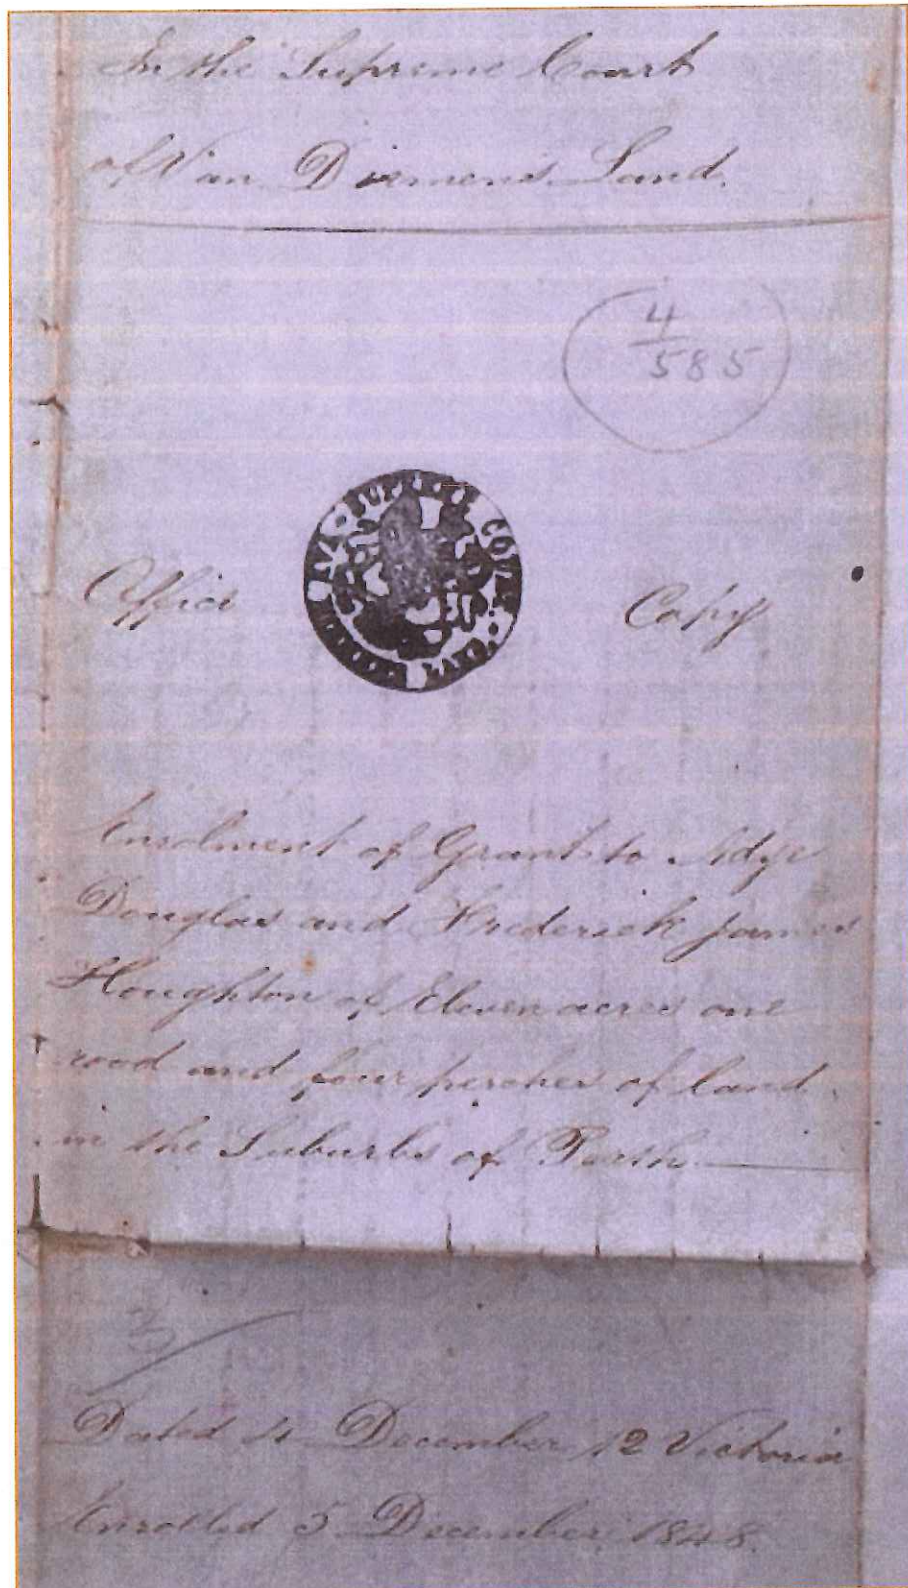 In the Supreme Court
of Van Diemens Land.
4
585
Office
Copy
Enrolment of Grant to Adye
Douglas and Frederick James
Houghton of Eleven acres one
rood and four perches of land
in the Suburbs of Perth
Dated 4 December 12 Victoria
Enrolled 5 December 1848.